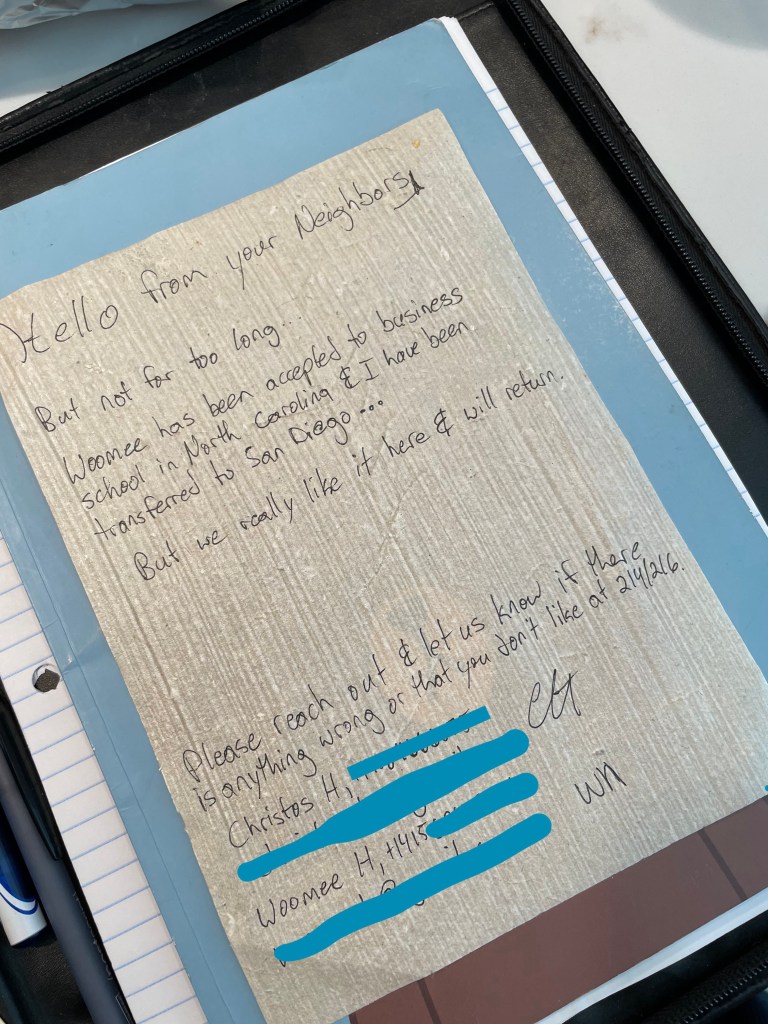 Hello from your Neighbors,
But not for too long...
Woomee has been accepted to business
school in North Carolina & I have been
transferred to San Diego...
But we really like it here & will return.
Please reach out & let us know if there
is anything wrong or that you don't like at
Christos H,
Woomee H, +1415
WH